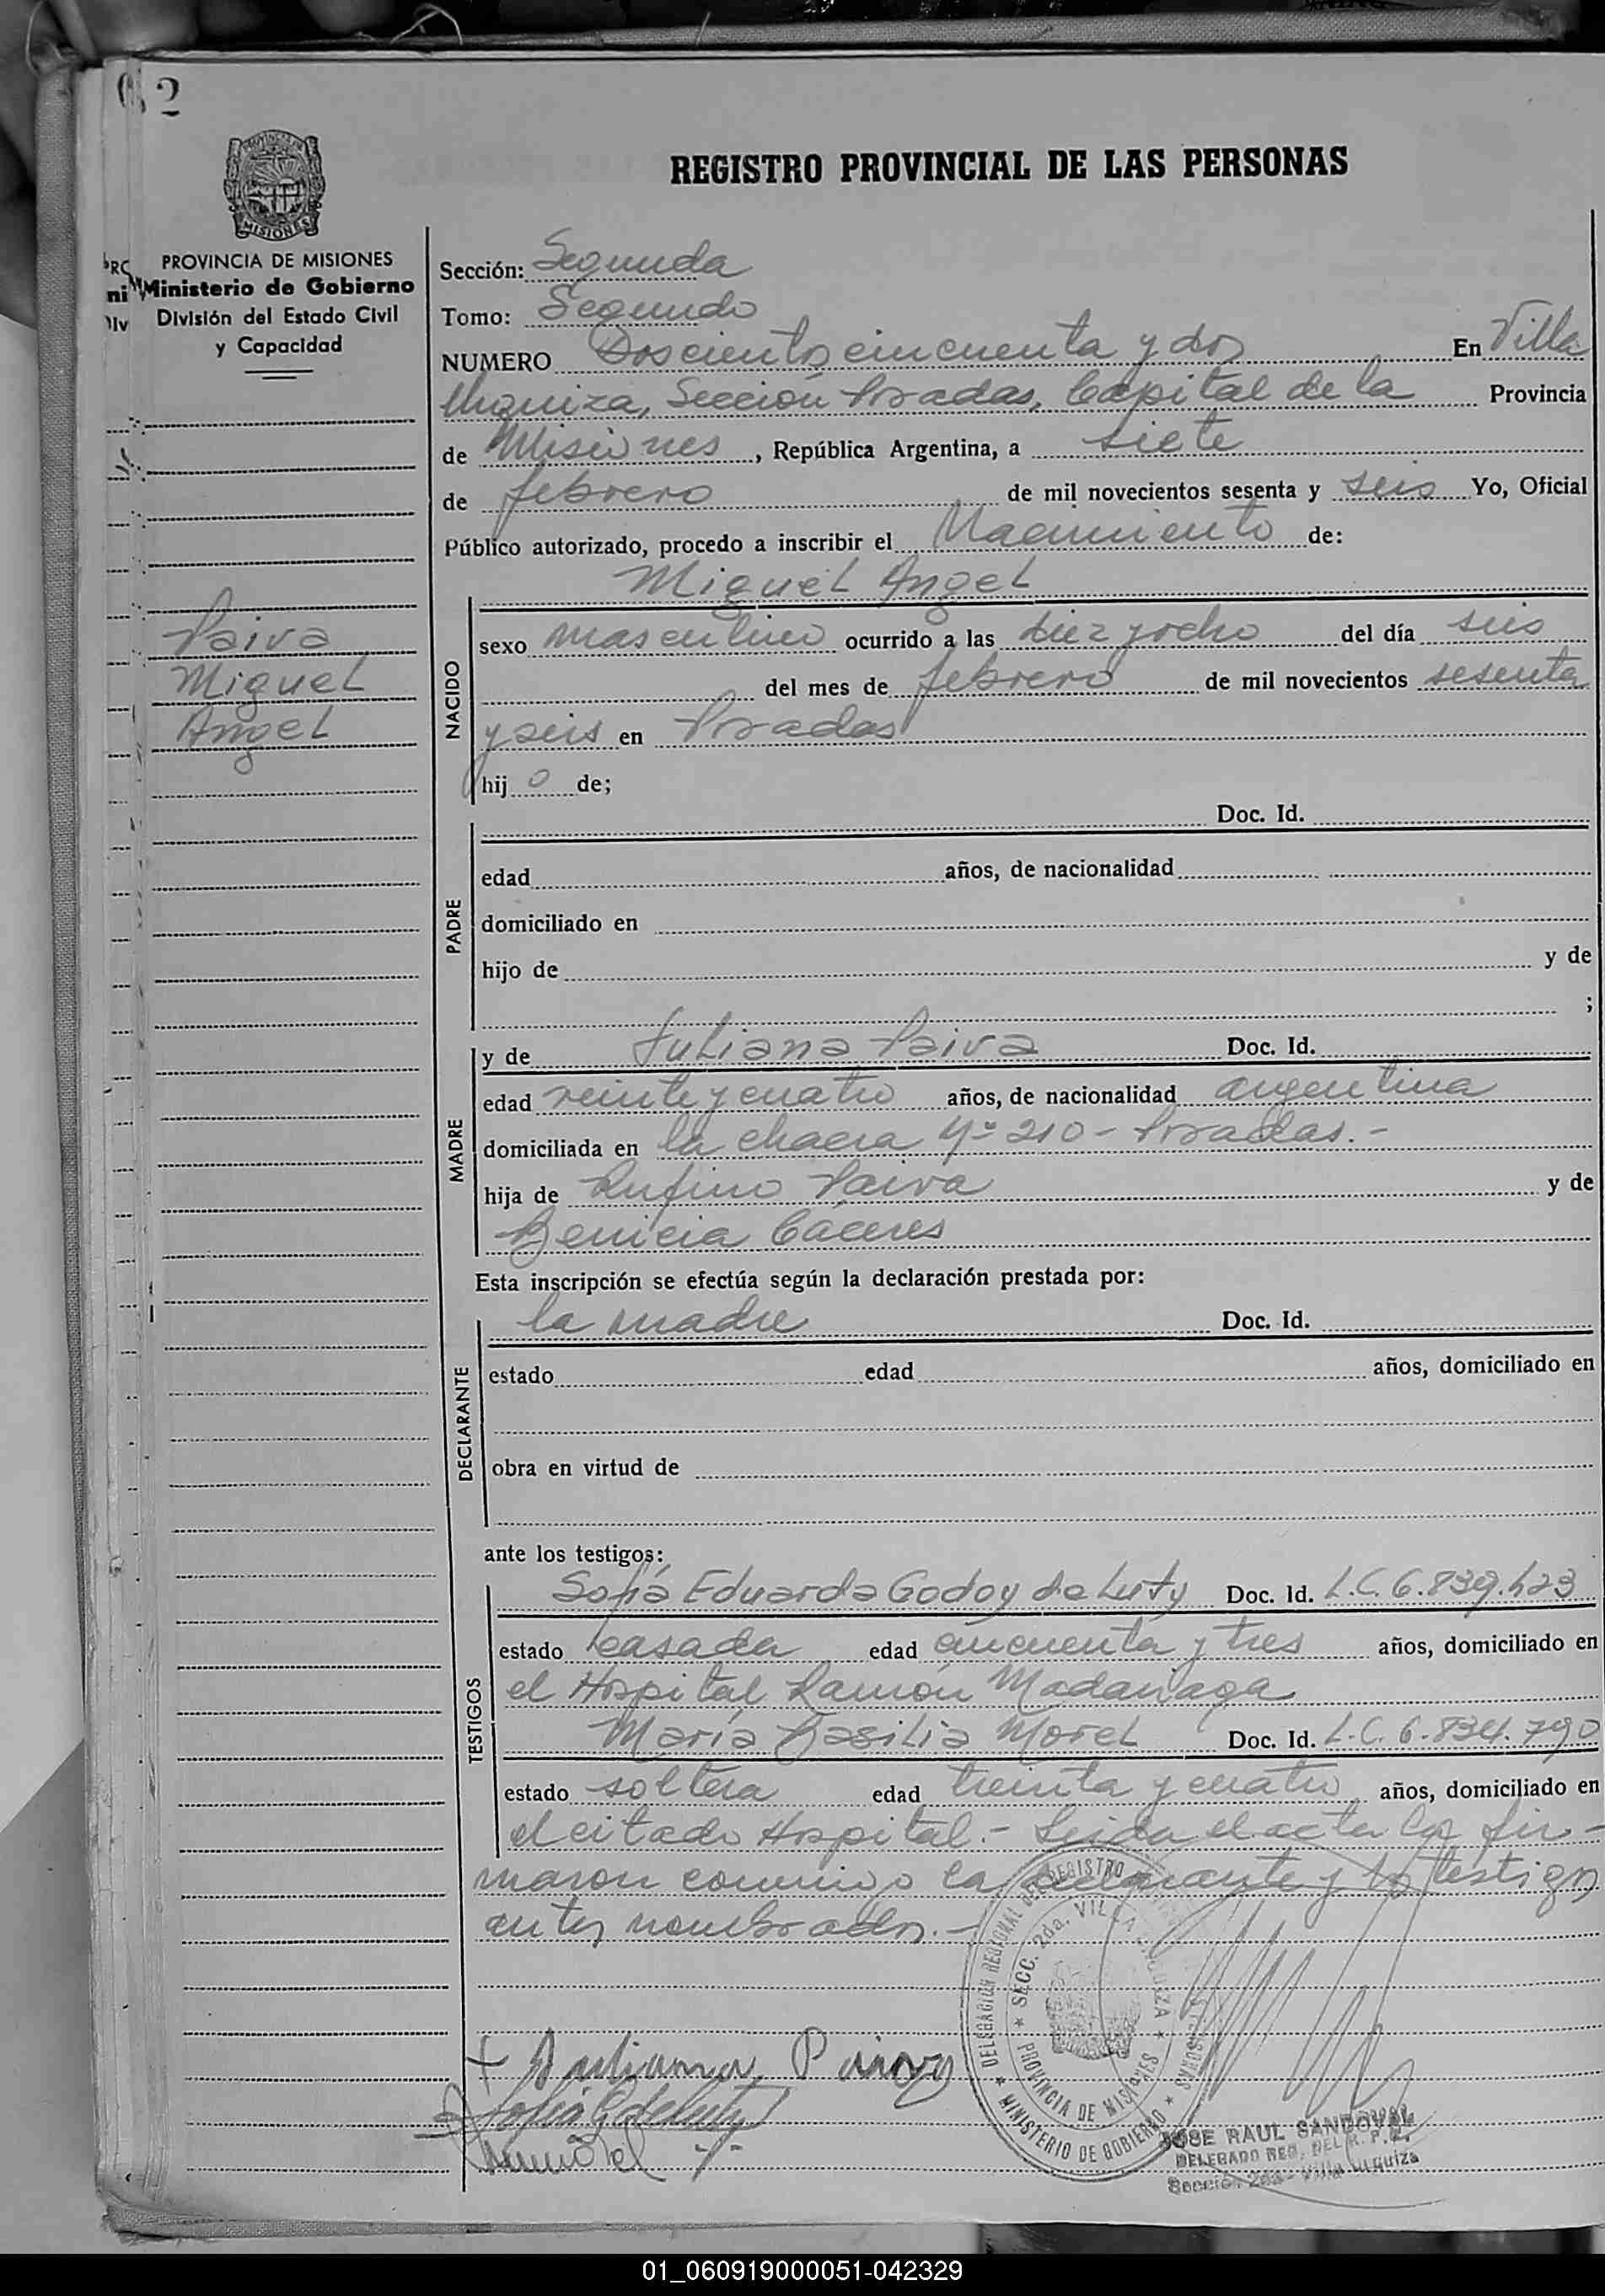 2
REGISTRO PROVINCIAL DE LAS PERSONAS
MISIONES
PROVINCIA DE MISIONES
Ministerio de Gobierno
División del Estado Civil
y Capacidad
Sección: Segunda
Tomo: Segundo
NUMERO Doscientos cincuenta y dos En Villa
Urquiza, Sección Posadas, Capital de la Provincia
de Misiones, República Argentina, a siete
de febrero de mil novecientos sesenta y seis Yo, Oficial
Público autorizado, procedo a inscribir el Nacimiento de:
Miguel Angel
Paiva
Miguel
Angel
NACIDO
sexo masculino ocurrido a las diez y ocho del día seis
del mes de febrero de mil novecientos sesenta
y seis en Posadas
hij o de;
PADRE
Doc. Id.
edad años, de nacionalidad
domiciliado en
hijo de y de
;
MADRE
y de Juliana Paiva Doc. Id.
edad veinte y cuatro años, de nacionalidad argentina
domiciliada en la chacra Nº 210 - Posadas.-
hija de Rufino Paiva y de
Benicia Cáceres
Esta inscripción se efectúa según la declaración prestada por:
DECLARANTE
la madre Doc. Id.
estado edad años, domiciliado en
obra en virtud de
ante los testigos:
TESTIGOS
Sofía Eduarda Godoy de Luty Doc. Id. L.C. 6.839.423
estado casada edad cincuenta y tres años, domiciliado en
el Hospital Ramón Madariaga
María Basilia Morel Doc. Id. L.C. 6.834.790
estado soltera edad treinta y cuatro años, domiciliado en
el citado Hospital.- Leida el acta la fir-
maron conmigo la declarante y los testigos
antes nombrados.-
DELEGACION REGIONAL DEL REGISTRO
SECC. 2da. VILLA URQUIZA
PROVINCIA DE MISIONES
MINISTERIO DE GOBIERNO
+ Juliana Paiva
Sofía G de Luty
JOSE RAUL SANDOVAL
DELEGADO REG. DEL R. P. P.
Sección 2da - Villa Urquiza
01_060919000051-042329